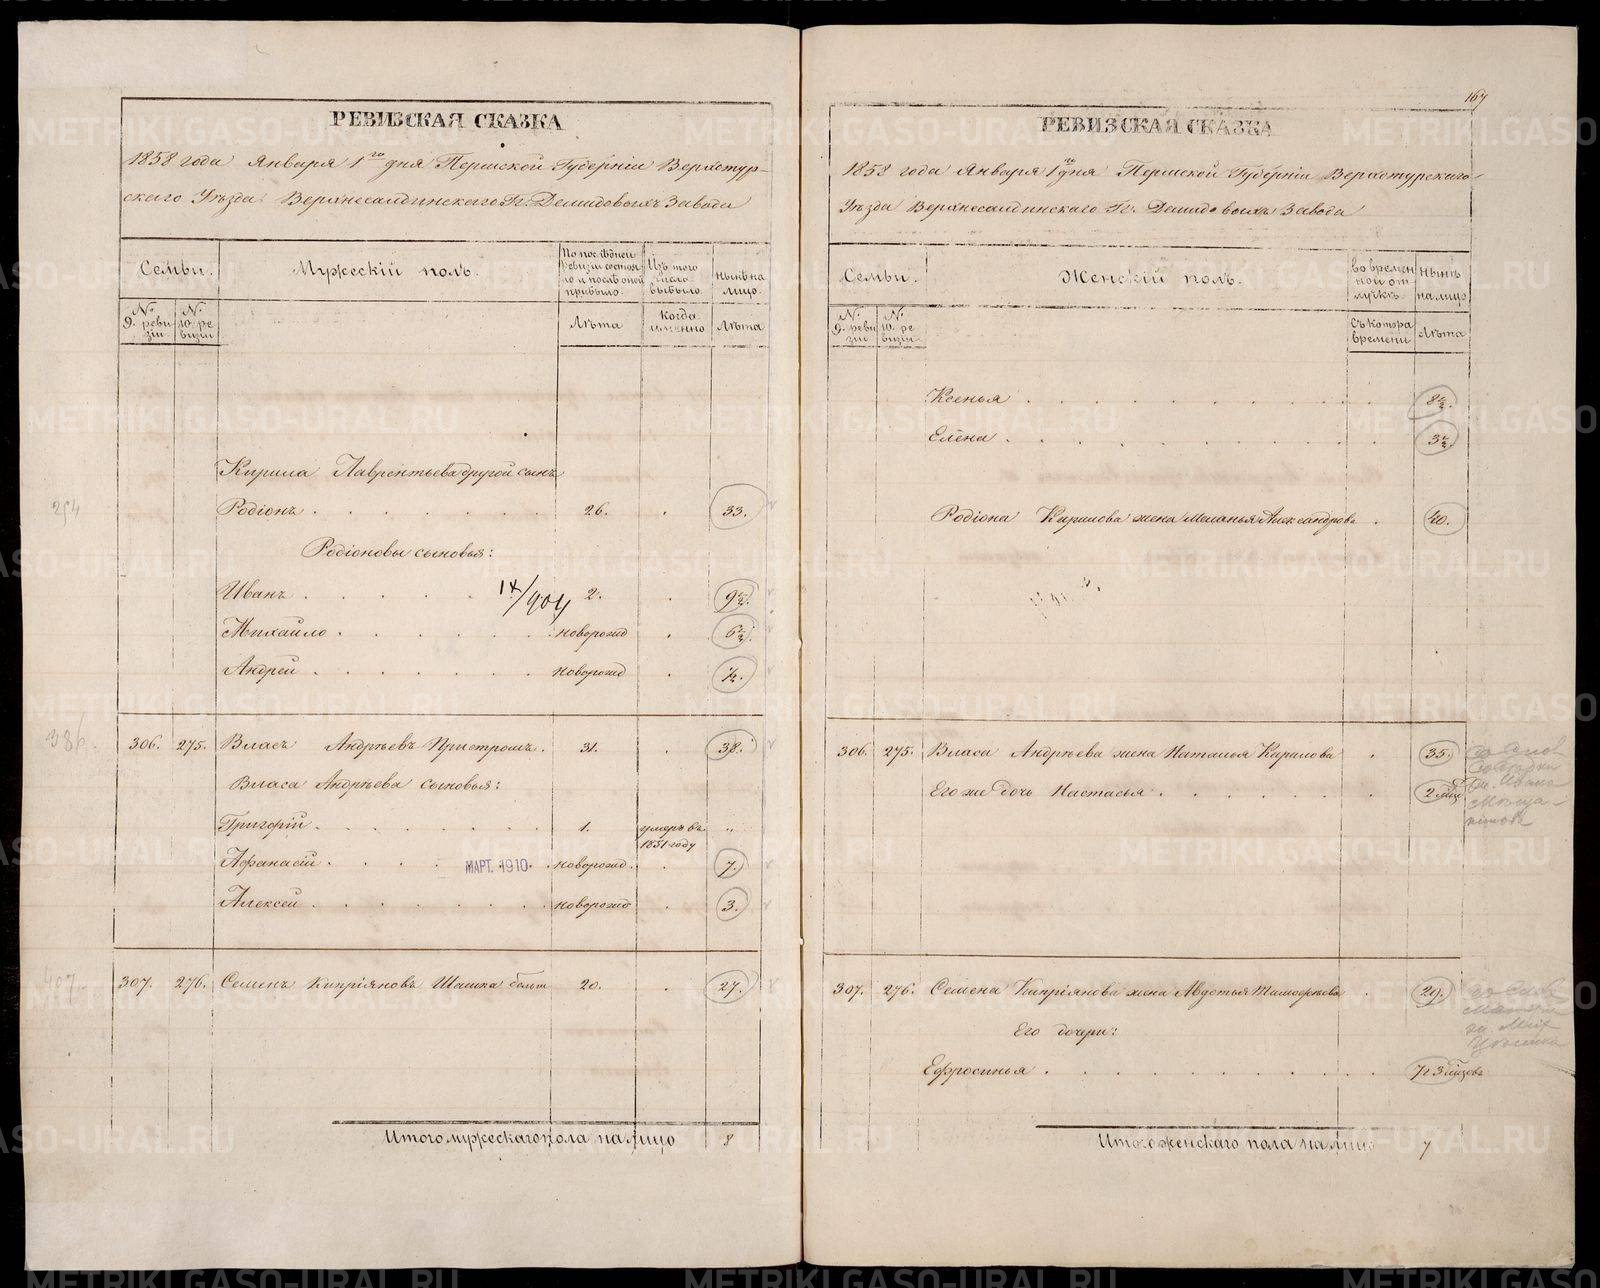 РЕВИЗСКАЯ СКАЗКА
1858 года Января 1го дня Пермской Губерніи Верхотур-
скаго Уѣзда Верхнесалдинскаго Гг. Демидовыхъ Завода
Семьи.
Мужескій полъ.
По послѣдней
ревизіи состоя-
ло и послѣ оной
прибыло.
Изъ того
числа
выбыло.
Нынѣ на
лицо.
№
9. реви
зіи
№
10. ре
визіи
Лѣта
Когда
именно
Лѣта
Кирила Лаврентьева другой сынъ
254
Родіонъ . . . . . . . 26. . 33.
Родіоновы сыновья:
Иванъ . . . . . 14/904 2. . 9½.
Михайло . . . . . . новорожд . 6½.
Андрей . . . . . . . новорожд . ½.
386.
306. 275. Власъ Андрѣевъ Пристромъ. 31. . 38.
Власа Андрѣева сыновья:
Григорій . . . . . . . 1. умеръ въ 1851 году „
Афанасій . . . . МАРТ. 1910. новорожд. . 7.
Алексей . . . . . . . новорожд . 3.
407.
307. 276. Семенъ Кипріяновъ Шашка больш 20. . 27.
Итого мужескаго пола на лицо 8
167
РЕВИЗСКАЯ СКАЗКА
1858 года Января 1го дня Пермской Губерніи Верхотурскаго
Уѣзда Верхнесалдинскаго Гг. Демидовыхъ Завода
Семьи.
Женскій полъ.
во времен
ной от
лучкѣ.
Нынѣ
на лицо
№
9. реви
зіи
№
10. ре
визіи
Съ котора
времени
Лѣта
Ксенья . . . . . . . . . 8½.
Елена . . . . . . . . . 3½.
Родіона Кирилова жена Меланья Александрова . 40.
306. 275. Власа Андрѣева жена Наталья Кирилова . 35.
Его же дочь Настасья . . . . . . 2 мѣс
307. 276. Семена Кипріянова жена Авдотья Тимофѣева . 29.
Его дочери:
Ефросинья . . . . . . . . . 7 и 3 мѣсяцовъ
Итого женскаго пола на лицо 7
METRIKI.GASO-URAL.RU